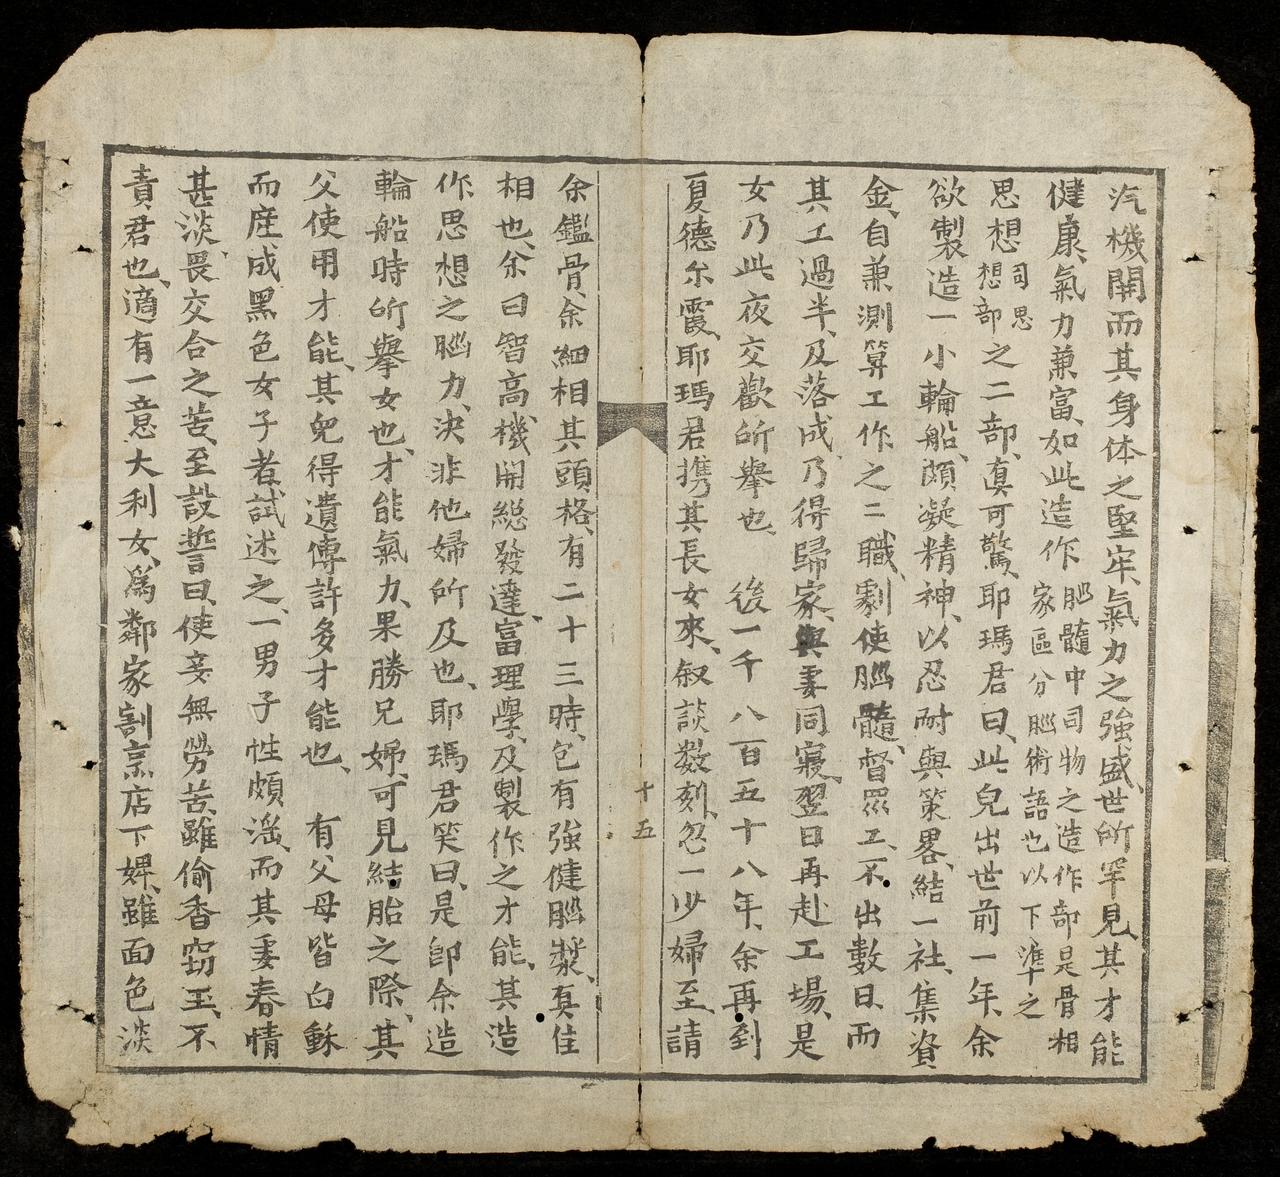 汽機開而其身体之堅牢、氣力之強盛、世所罕見、其才能
健康、氣力兼富、如此造作 腦髓中司物之造作部是骨相家區分腦術語也以下準之
思想 司思想部 之二部、真可驚、耶瑪君曰、此兒出世前一年、余
欲製造一小輪船、頗凝精神、以忍耐與策畧、結一社、集資
金、自兼測算工作之二職、劇使腦髓、督眾工、不出數日、而
其工過半、及落成、乃得歸家、與妻同寢、翌日再赴工場、是
女乃此夜交歡所舉也、 後一千八百五十八年、余再到
夏德尓霞、耶瑪君携其長女來、叙談数刻、忽一少婦至、請
十五
余鑑骨、余細相其頭格、有二十三時、包有強健腦漿、真佳
相也、余曰智高、機開総發達、富理學、及製作之才能、其造
作思想之腦力、決非他婦所及也、耶瑪君笑曰、是卽余造
輪船時所擧女也、才能氣力、果勝兄姊、可見結胎之際、其
父使用才能、其兒得遺傳許多才能也、 有父母皆白穌
而産成黑色女子者、試述之、一男子性頗滛、而其妻春情
甚淡、畏交合之苦、至設誓曰、使妾無勞苦、雖偷香窃玉、不
責君也、適有一意大利女、爲鄰家割烹店下婢、雖面色淡